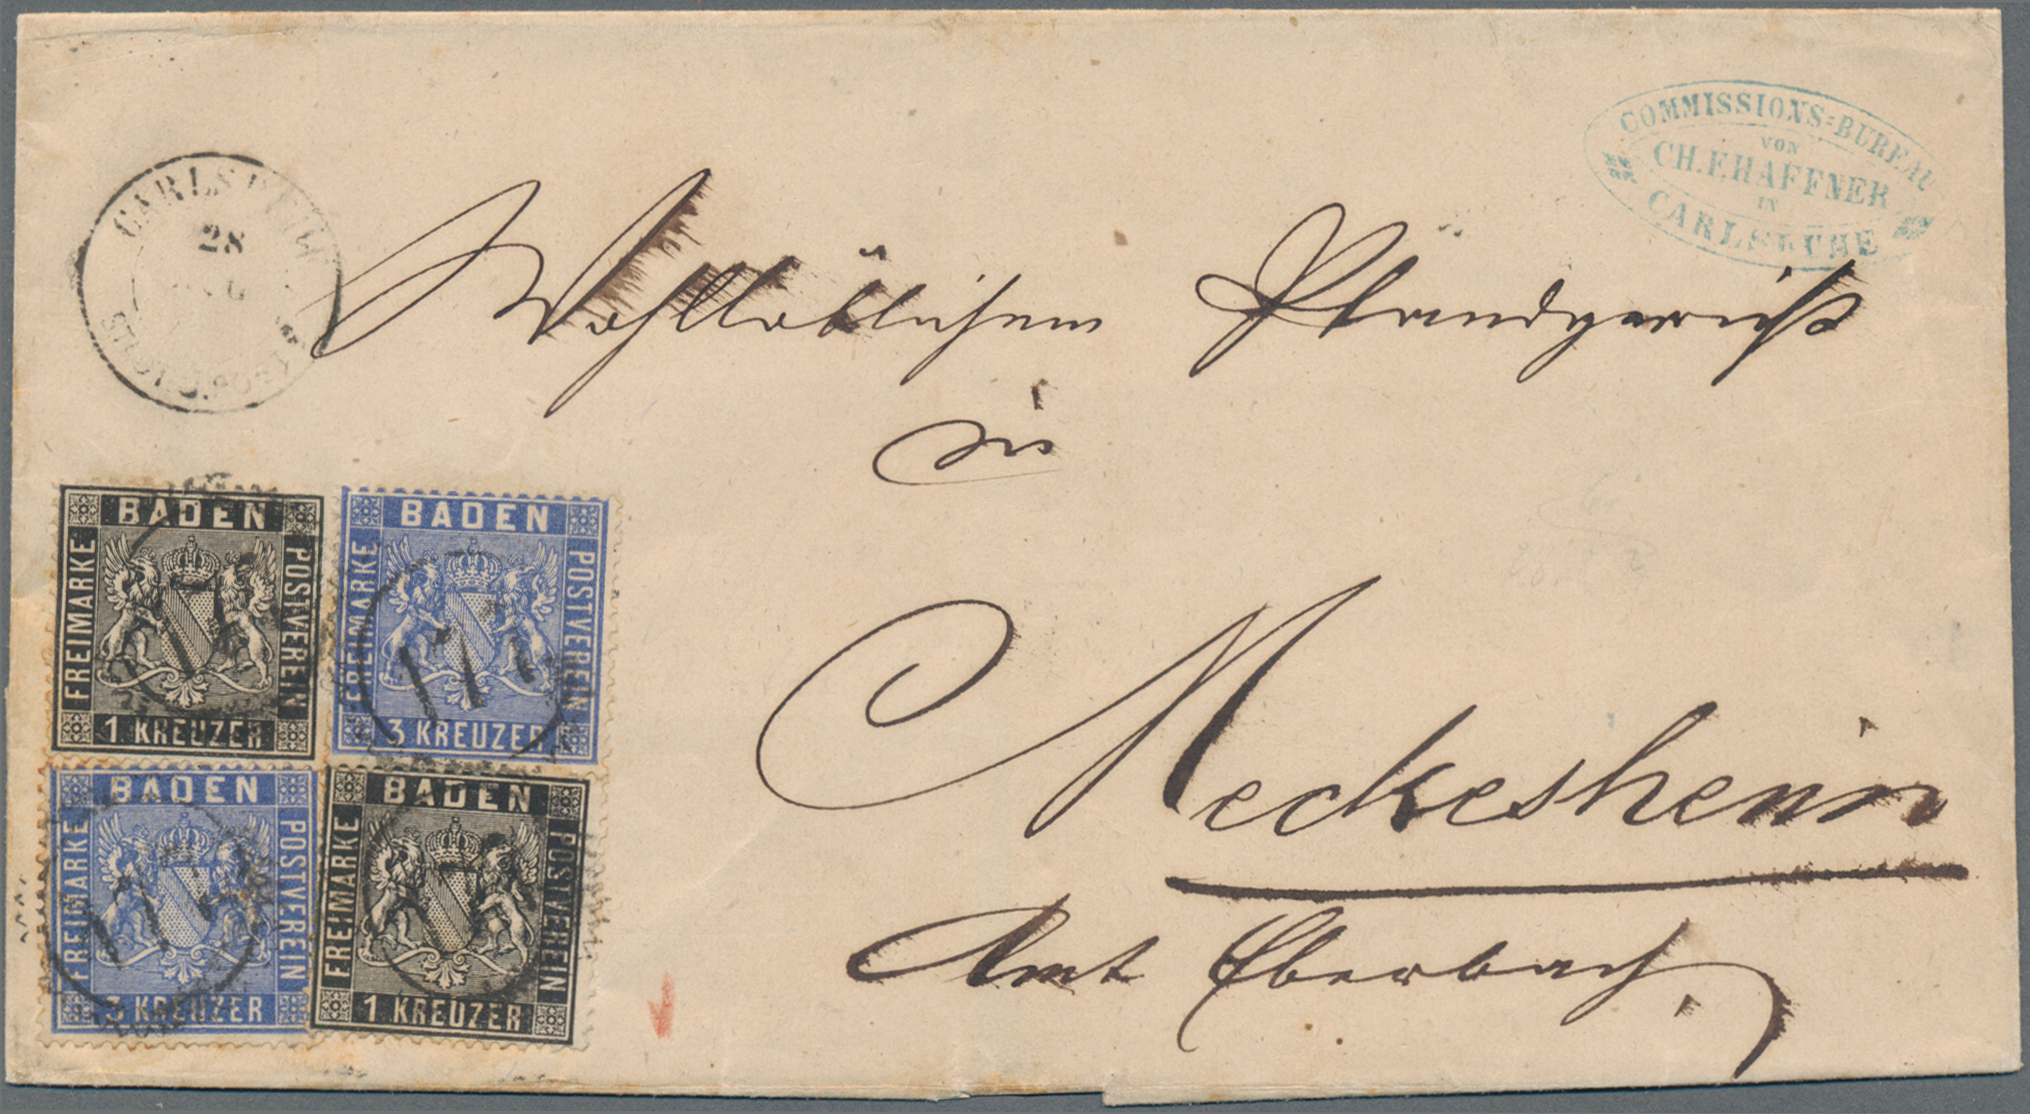 COMMISSIONS-BUREAU
VON
CH. F. HAFFNER
IN
CARLSRUHE
CARLSRUHE
28
Wohllöblichem Pfandgericht
in
Meckesheim
Amt Eberbach
BADEN
FREIMARKE
POSTVEREIN
1 KREUZER
BADEN
FREIMARKE
POSTVEREIN
3 KREUZER
BADEN
FREIMARKE
POSTVEREIN
3 KREUZER
BADEN
FREIMARKE
POSTVEREIN
1 KREUZER